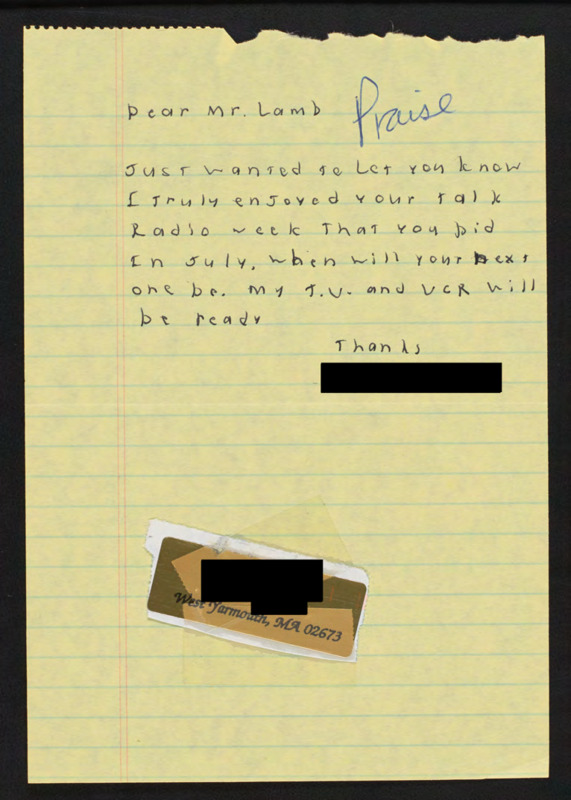 Dear Mr. Lamb
Praise
Just wanted to Let you know
I Truly enjoyed your talk
Radio week That you Did
In July, when will your next
one be. My T.V. and VCR will
be ready
Thanks
West Yarmouth, MA 02673